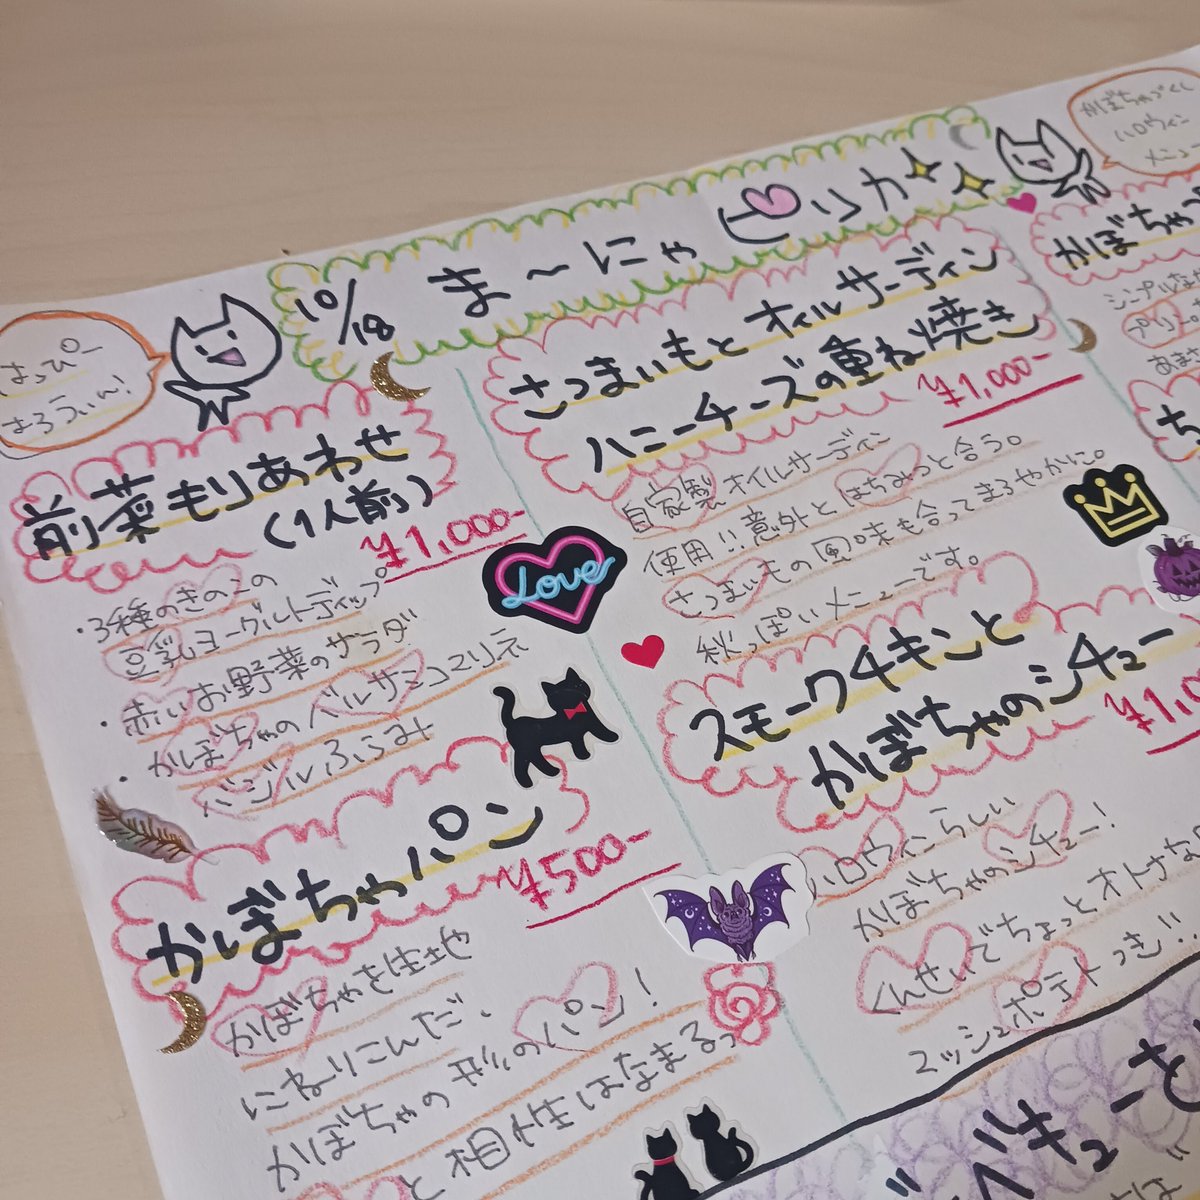 10/18
ま〜にゃ
ピッカ
はっぴー
はろうぃん!
前菜もりあわせ
(1人前)
¥1,000-
・3種のきのこの
豆乳ヨーグルトディップ
・赤いお野菜のサラダ
・かぼちゃのバルサミコマリネ
バジルふうみ
かぼちゃパン
¥500-
かぼちゃを生地
にねりこんだ、
かぼちゃの形のパン!
と相性はなまるっ
さつまいもとオイルサーディン
ハニーチーズの重ね焼き
¥1,000-
自家製オイルサーディン
使用!!意外とはちみつと合う。
さつまいもの風味も合ってまろやかに。
秋っぽいメニューです。
Love
スモークチキンと
かぼちゃのシチュー
ハロウィンらしい
かぼちゃのシチュー!
くんせいでちょっとオトナな
マッシュポテトつき!!
かぼちゃづくし
ハロウィン
メニュー
かぼちゃ
シンプルな